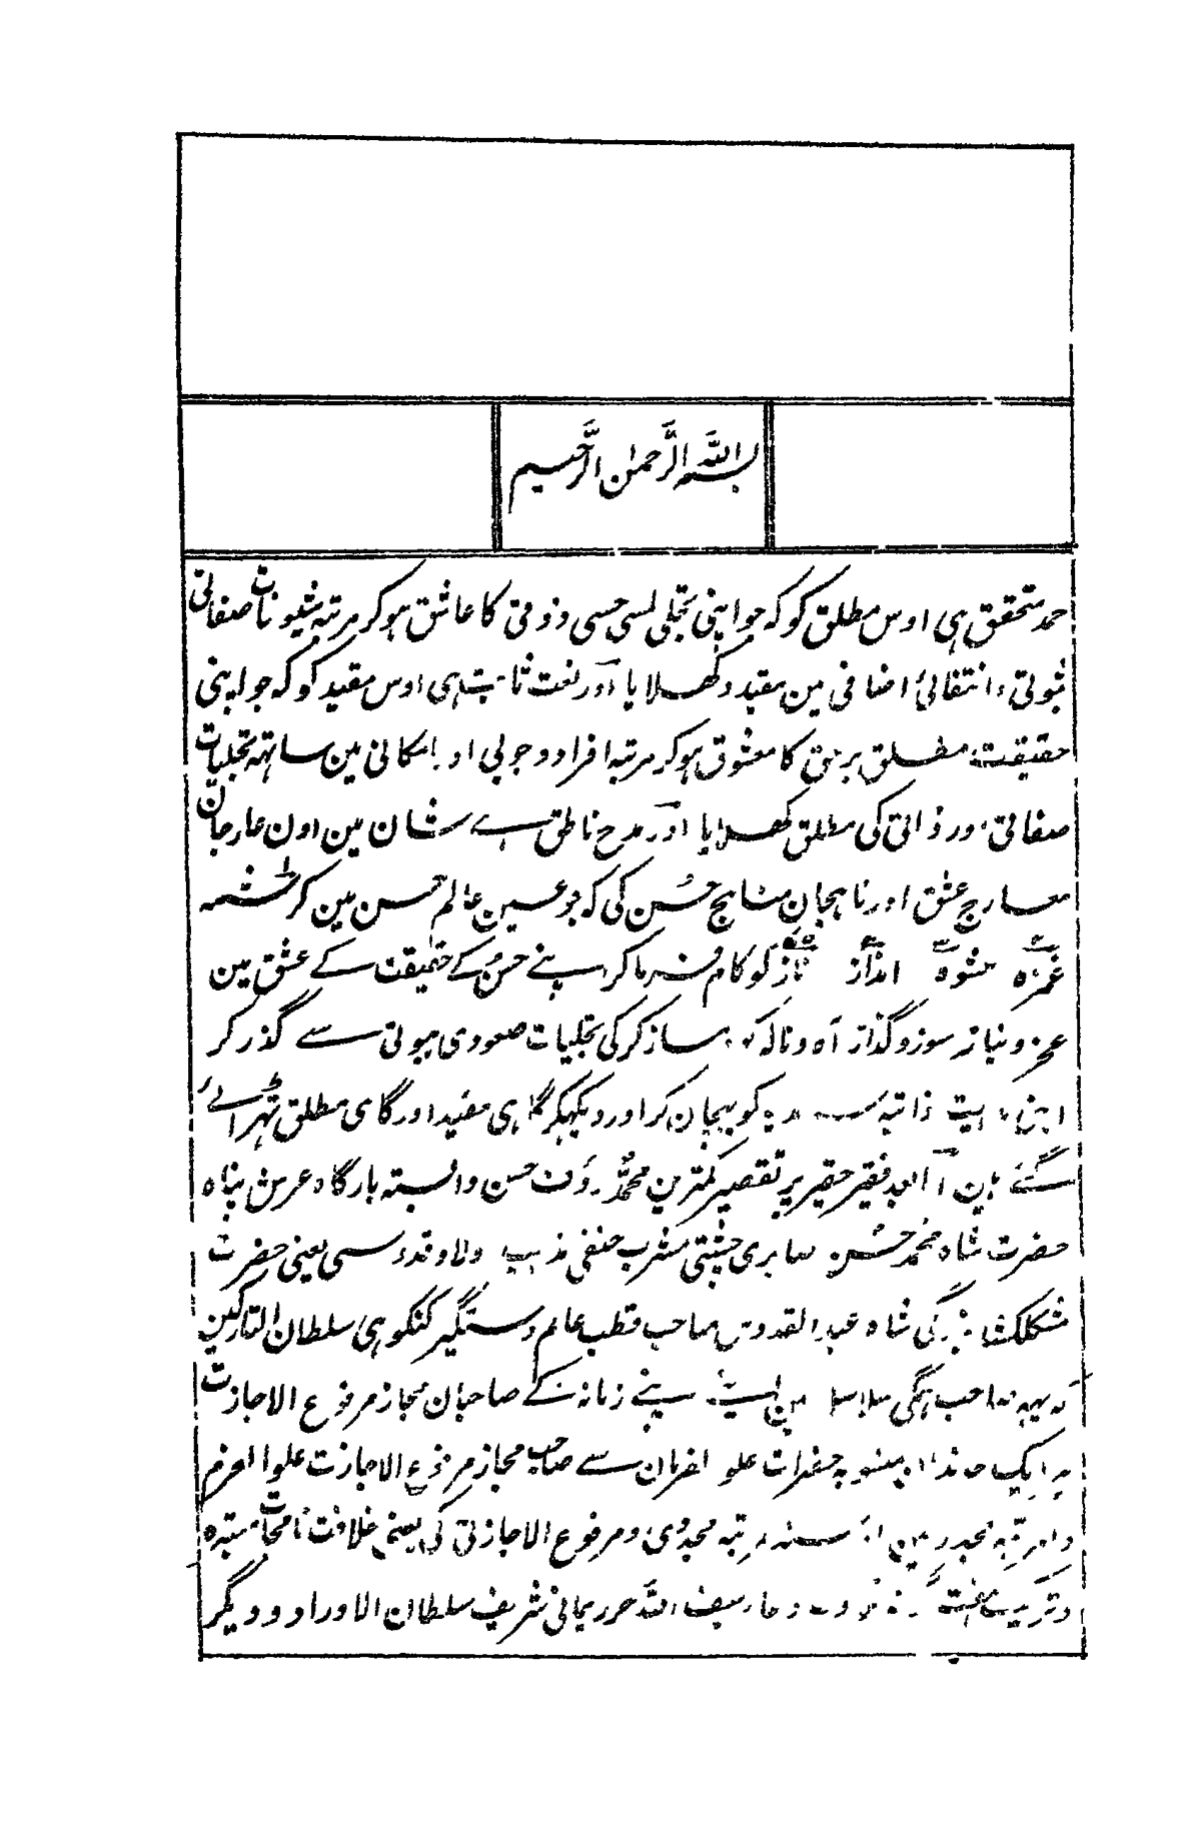 بسم اللہ الرحمن الرحیم
حمد متحقق ہی اوس مطلق کو کہ جو اپنی تجلی حسی و ذوقی کا عاشق ہو کر مرتبہ شیونات صفاتی
ثبوتی و انتقالی اضافی مین مقید دکھلایا اور نعت ثابت ہی اوس مقید کو کہ جو اپنی
حقیقت مطلق برحق کا معشوق ہو کر مرتبہ افراد وجوبی او امکانی مین ساتھ تجلیات
صفاتی اور ذاتی کی مطلق کھلایا اور مدح ناطق ہے شان مین اون عارجان
معارج عشق اور ناہجان مناہج حسن کی کہ جو عین عالم حسن مین کرشمہ
غمزہ عشوہ انداز ناز کو کام فرما کر اپنے حسن کے حقیقت کے عشق مین
عجز و نیاز سوز و گداز آہ و نالہ ساز کر کی تجلیات صعودی ہبوتی سے گذر کر
اپنی ذاتیہ کو پہچان کر اور دیکہکر گاہی مقید اور گاہی مطلق ٹہرائے
گئے فقیر حقیر پر تقصیر کمترین محمد رؤف حسن وابستہ بارگاہ عرش پناہ
حضرت شاہ محمد حسن صابری چشتی مشرب حنفی مذہب ولا و قدوسی یعنی حضرت
مشکلکشا شاہ عبد القدوس صاحب قطب عالم دستگیر گنگوہی سلطان التارکین
کہ یہہ صاحب ہیگی مین اپنے زمانہ کے صاحبان مجاز مرفوع الاجازت
ہر ایک خاندان حضرات علو سے صاحب مجاز مرفوع الاجازت علو
مین مرتبہ مجددی و مرفوع الاجازتی کی یعنی خلافت
و ترکیب و دعا سیف اللہ حرز یمانی شریف سلطان الاوراد و دیگر